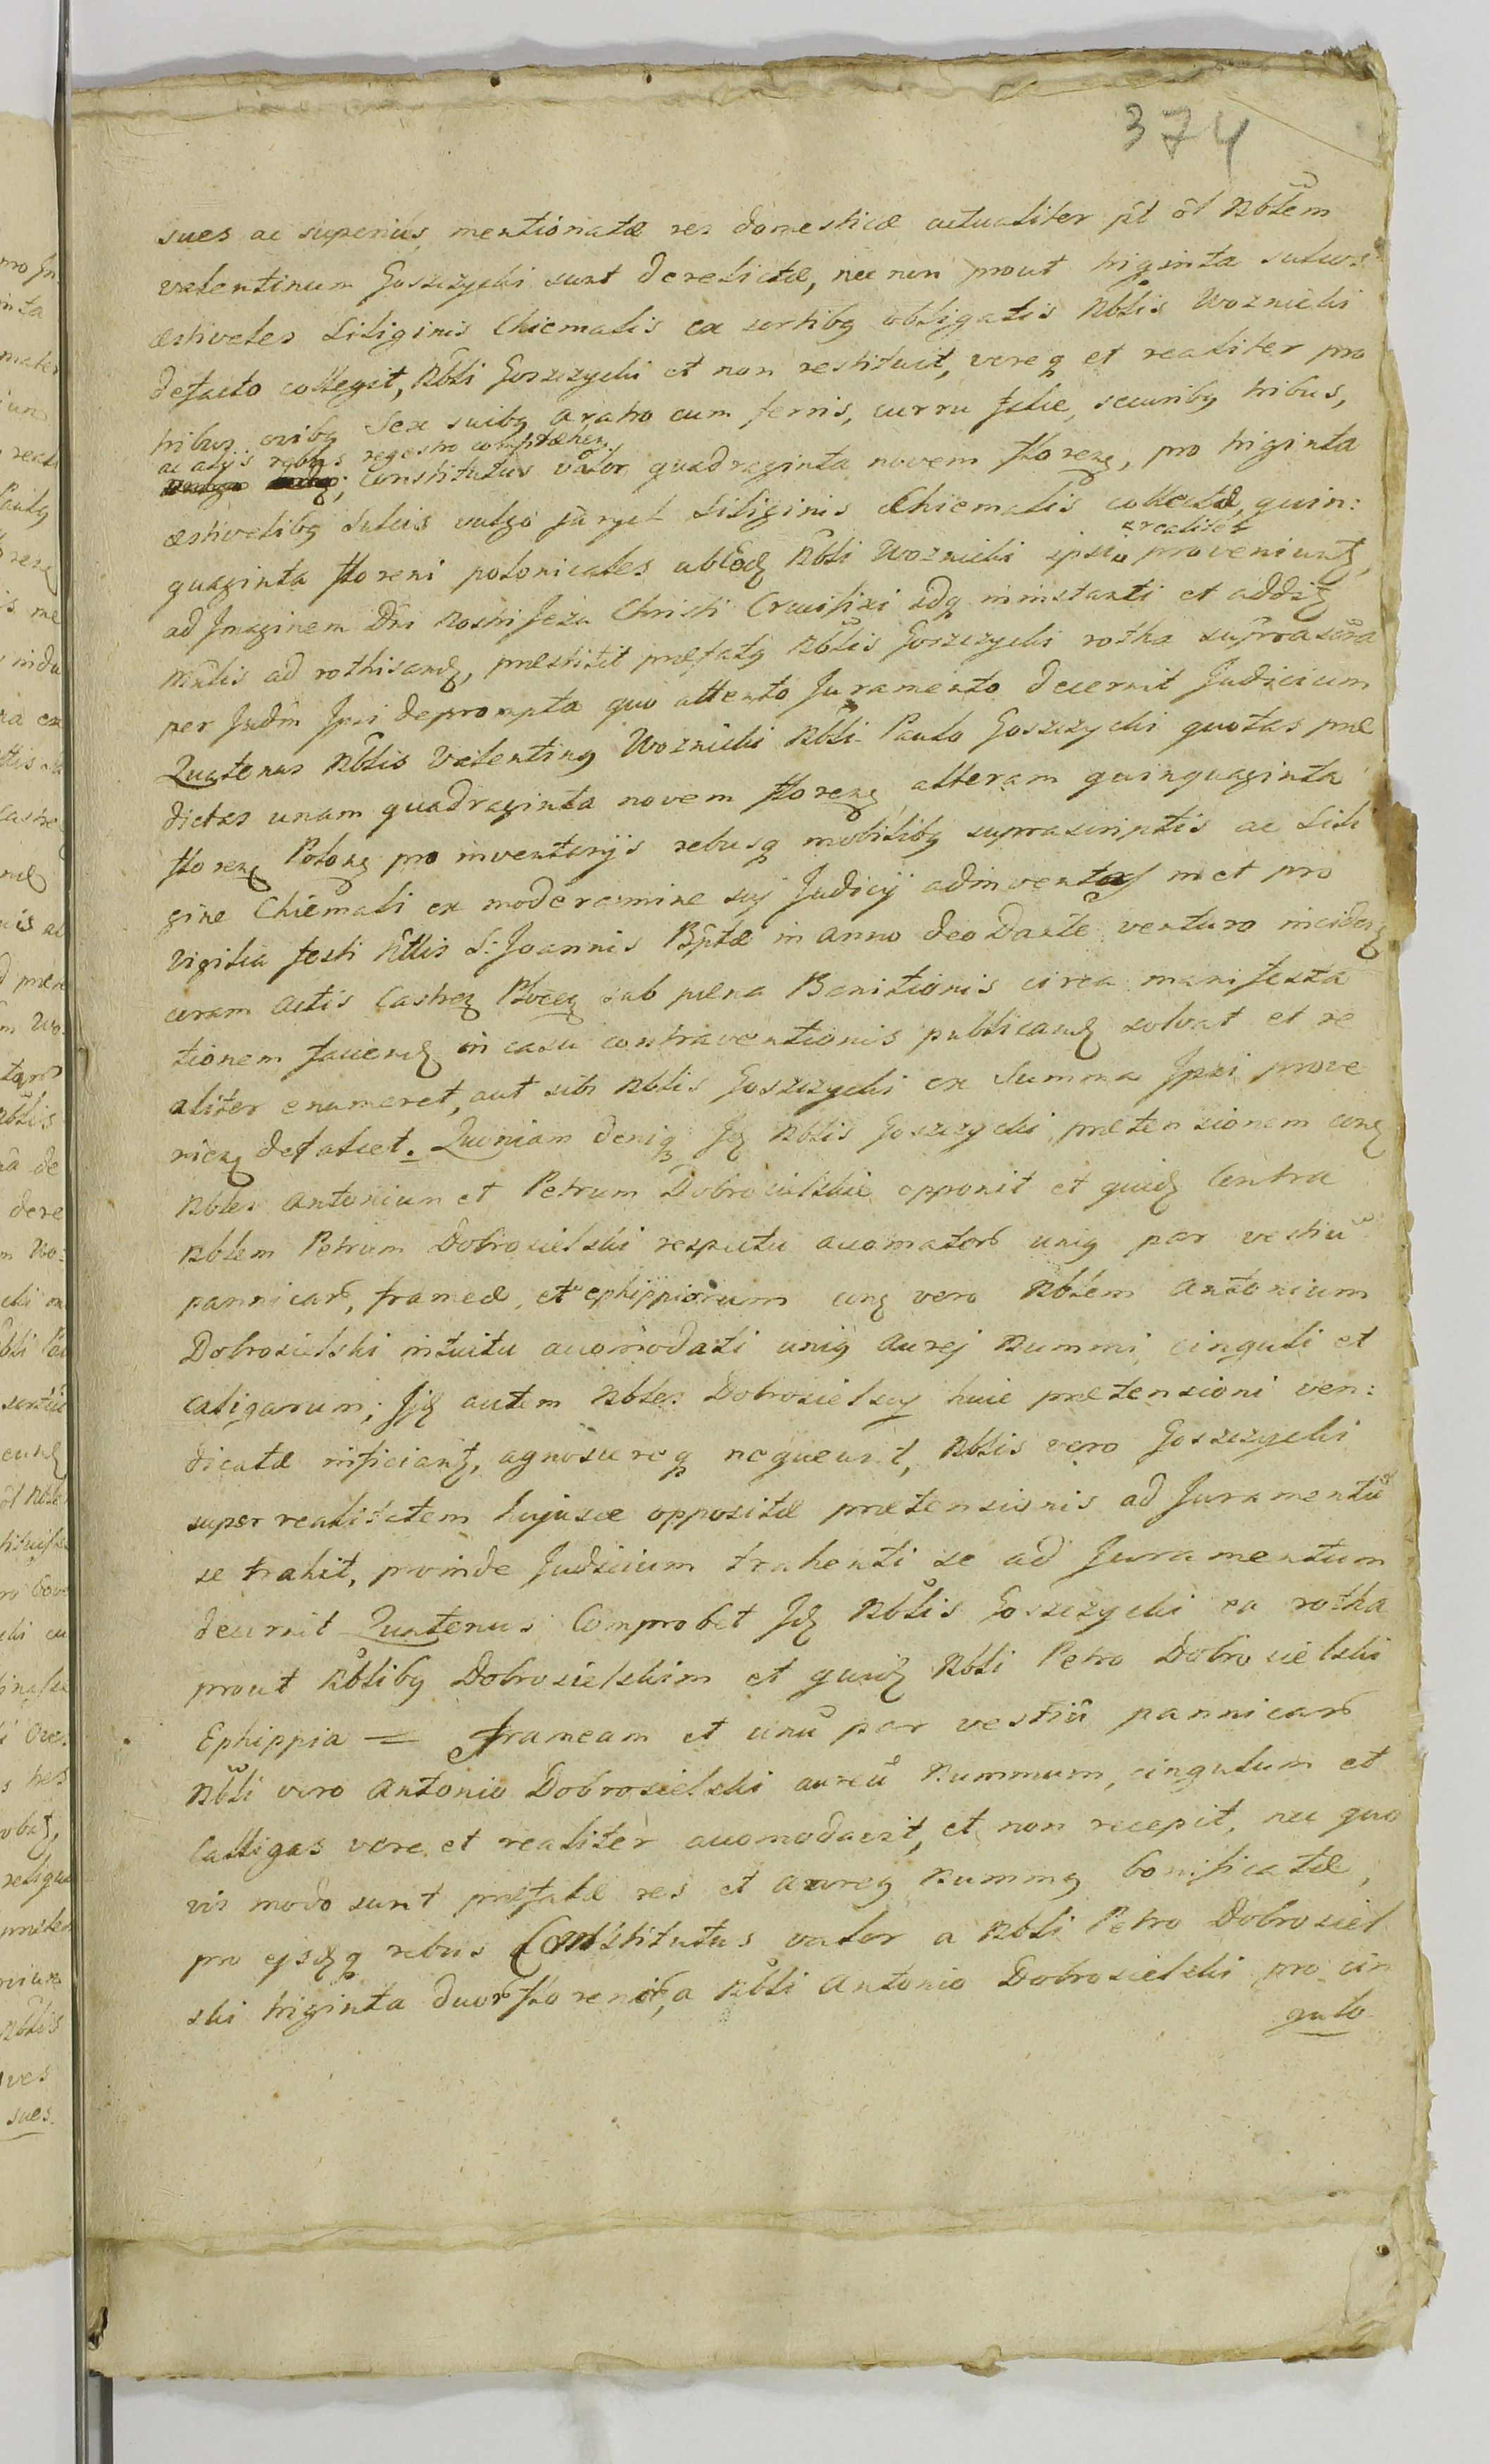 374
sues ac superius mentionatæ res domesticæ actualiter pēt ōt Nblem
valentinum Goszczycki sunt derelictæ, nec non prout triginta sulcos
æstivales Siliginis Chiemalis ex sortibq obligatis Nblis Woznicki
defacto collegit, Nbli Goszczycki et non restituit, vereq et realiter pro
tribus ovibq Sex suibq aratro cum ferris, curru securibq tribus,
ac alijs rebus regestro
Constitutus valor quadraginta novem floreng, pro triginta
æstivalibq Sulcis vulgo Siliginis Chiemalis collectæ, quin:
quaginta floreni polonicales ab Nbli Woznicki ipsi realiter proveniunt,
ad Imaginem Dni Nostri Jezu Christi Crucifixi idq ministranti et
ad rothisand, præstitit præfatq Nblis Goszczycki rotha supra
per Judm Ipsi deprompta quo attento Juramento decernit Judicium
Quatenus Nblis Valentinq Woznicki Nbli Paulo Goszczycki quotas præ
dictas unam quadraginta novem floreng alteram quinquaginta
floreng Polong pro inventarijs rebusq mobilibq suprascriptis ac Sili
gine Chiemali ex moderamine sui Judicij adinventas met pro
Vigilia festi Ntlis S: Joannis Bptæ in anno deo Dante venturo inciden
coram actis Castren sub pæna Banitionis circa manifesta
tionem faciend in casu contraventionis publicand solvat et re
aliter enumeret, aut sibi Nblis Goszczycki ex Summa Ipsi prove
nien defalcet. Quoniam deniq Id Nblis Goszczycki prætensionem con
Nbles Antonium et Petrum Dobrosielskie opponit et quid Contra
Nblem Petrum Dobrosielski respectu uniq par vestiū
pannicar, frameæ, et ephippiorum con vero Nblem Antonium
Dobrosielski intuitu accomodati uniq aurej Nummi cinguli et
caligarum; Ijd autem Nbles Dobrosielscy huic prætensioni ven:
dicatæ inficiant, agnoscereq nequeunt, Nblis vero Goszczycki
super realitatem hujusce oppositæ prætensionis ad Juramentū
se trahit, proinde Judicium trahenti se ad Juramentum
decernit Quatenus Comprobet Id Nblis Goszczycki ea rotha
prout Nblibq Dobrosielskim et quid Nbli Petro Dobrosielski
Ephippia = frameam et unū par vestiū pannicar
Nbli vero Antonio Dobrosielski aureū Nummum, cingulum et
Calligas vere et realiter accomodavit, et non recepit, nec quo
vis modo sunt præfatæ res et aureq Nummq bonificatæ,
pro ejsdq rebus Constitutus valor a Nbli Petro Dobrosiel
ski triginta duor florenor, a Nbli Antonio Dobrosielski pro cin
gulo